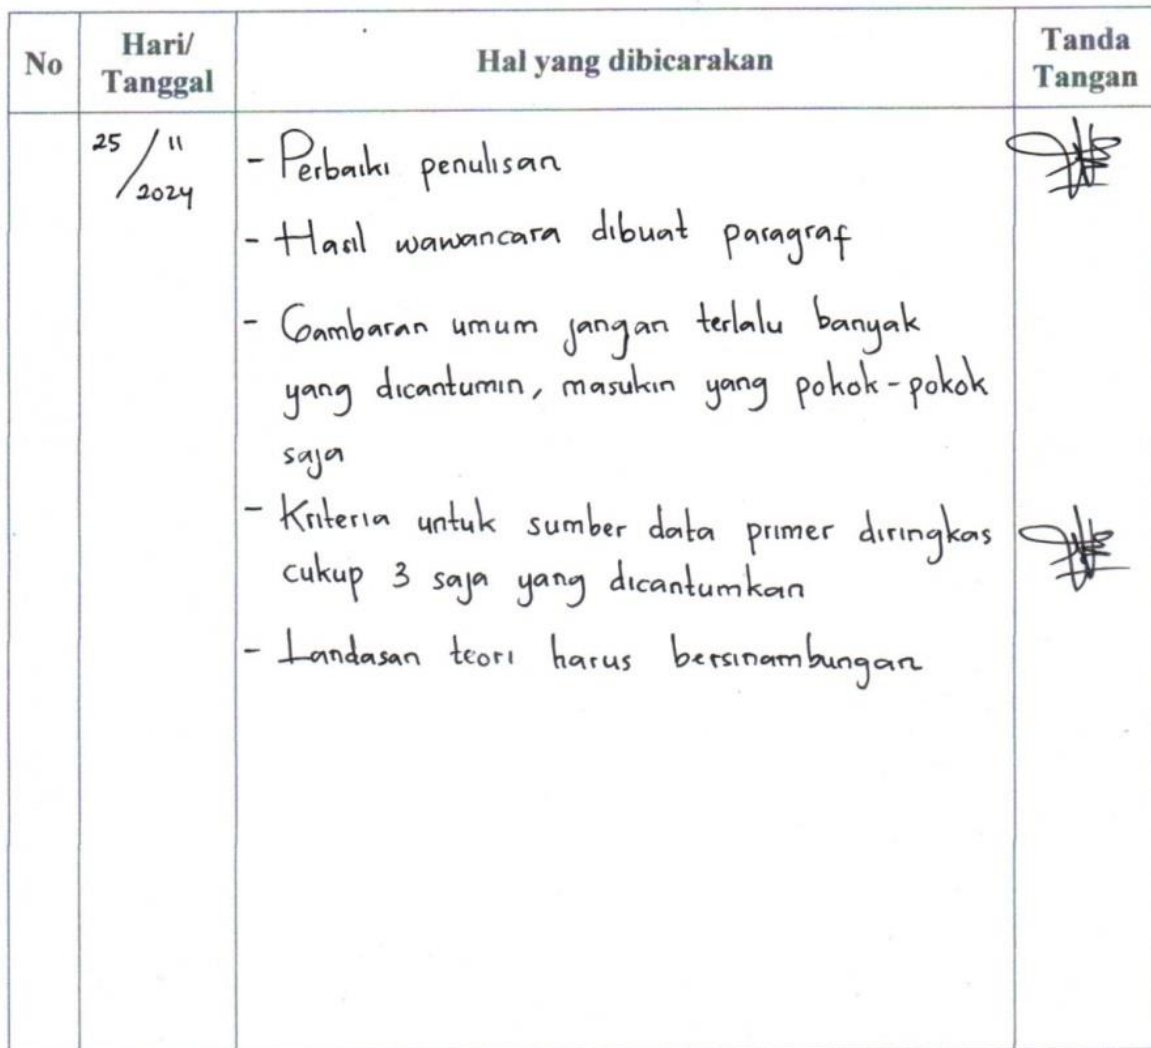 No
Hari/
Tanggal
Hal yang dibicarakan
Tanda
Tangan
25/11
2024
- Perbaiki penulisan
- Hasil wawancara dibuat paragraf
- Gambaran umum jangan terlalu banyak
yang dicantumin, masukin yang pokok-pokok
saja
- Kriteria untuk sumber data primer diringkas
cukup 3 saja yang dicantumkan
- Landasan teori harus bersinambungan